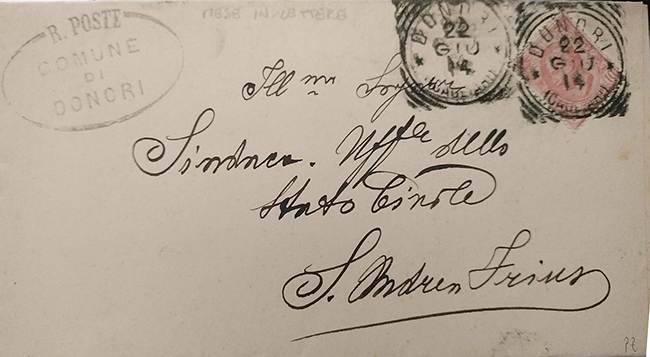 R. POSTE
COMUNE
DI
DONORI
MESE IN LETTERE
DONORI
22
GIU
14
(CAGLIARI)
DONORI
22
GIU
14
(CAGLIARI)
Ill mo
Sindaco. Uff le dello
Stato Civile
S. Andrea Frius